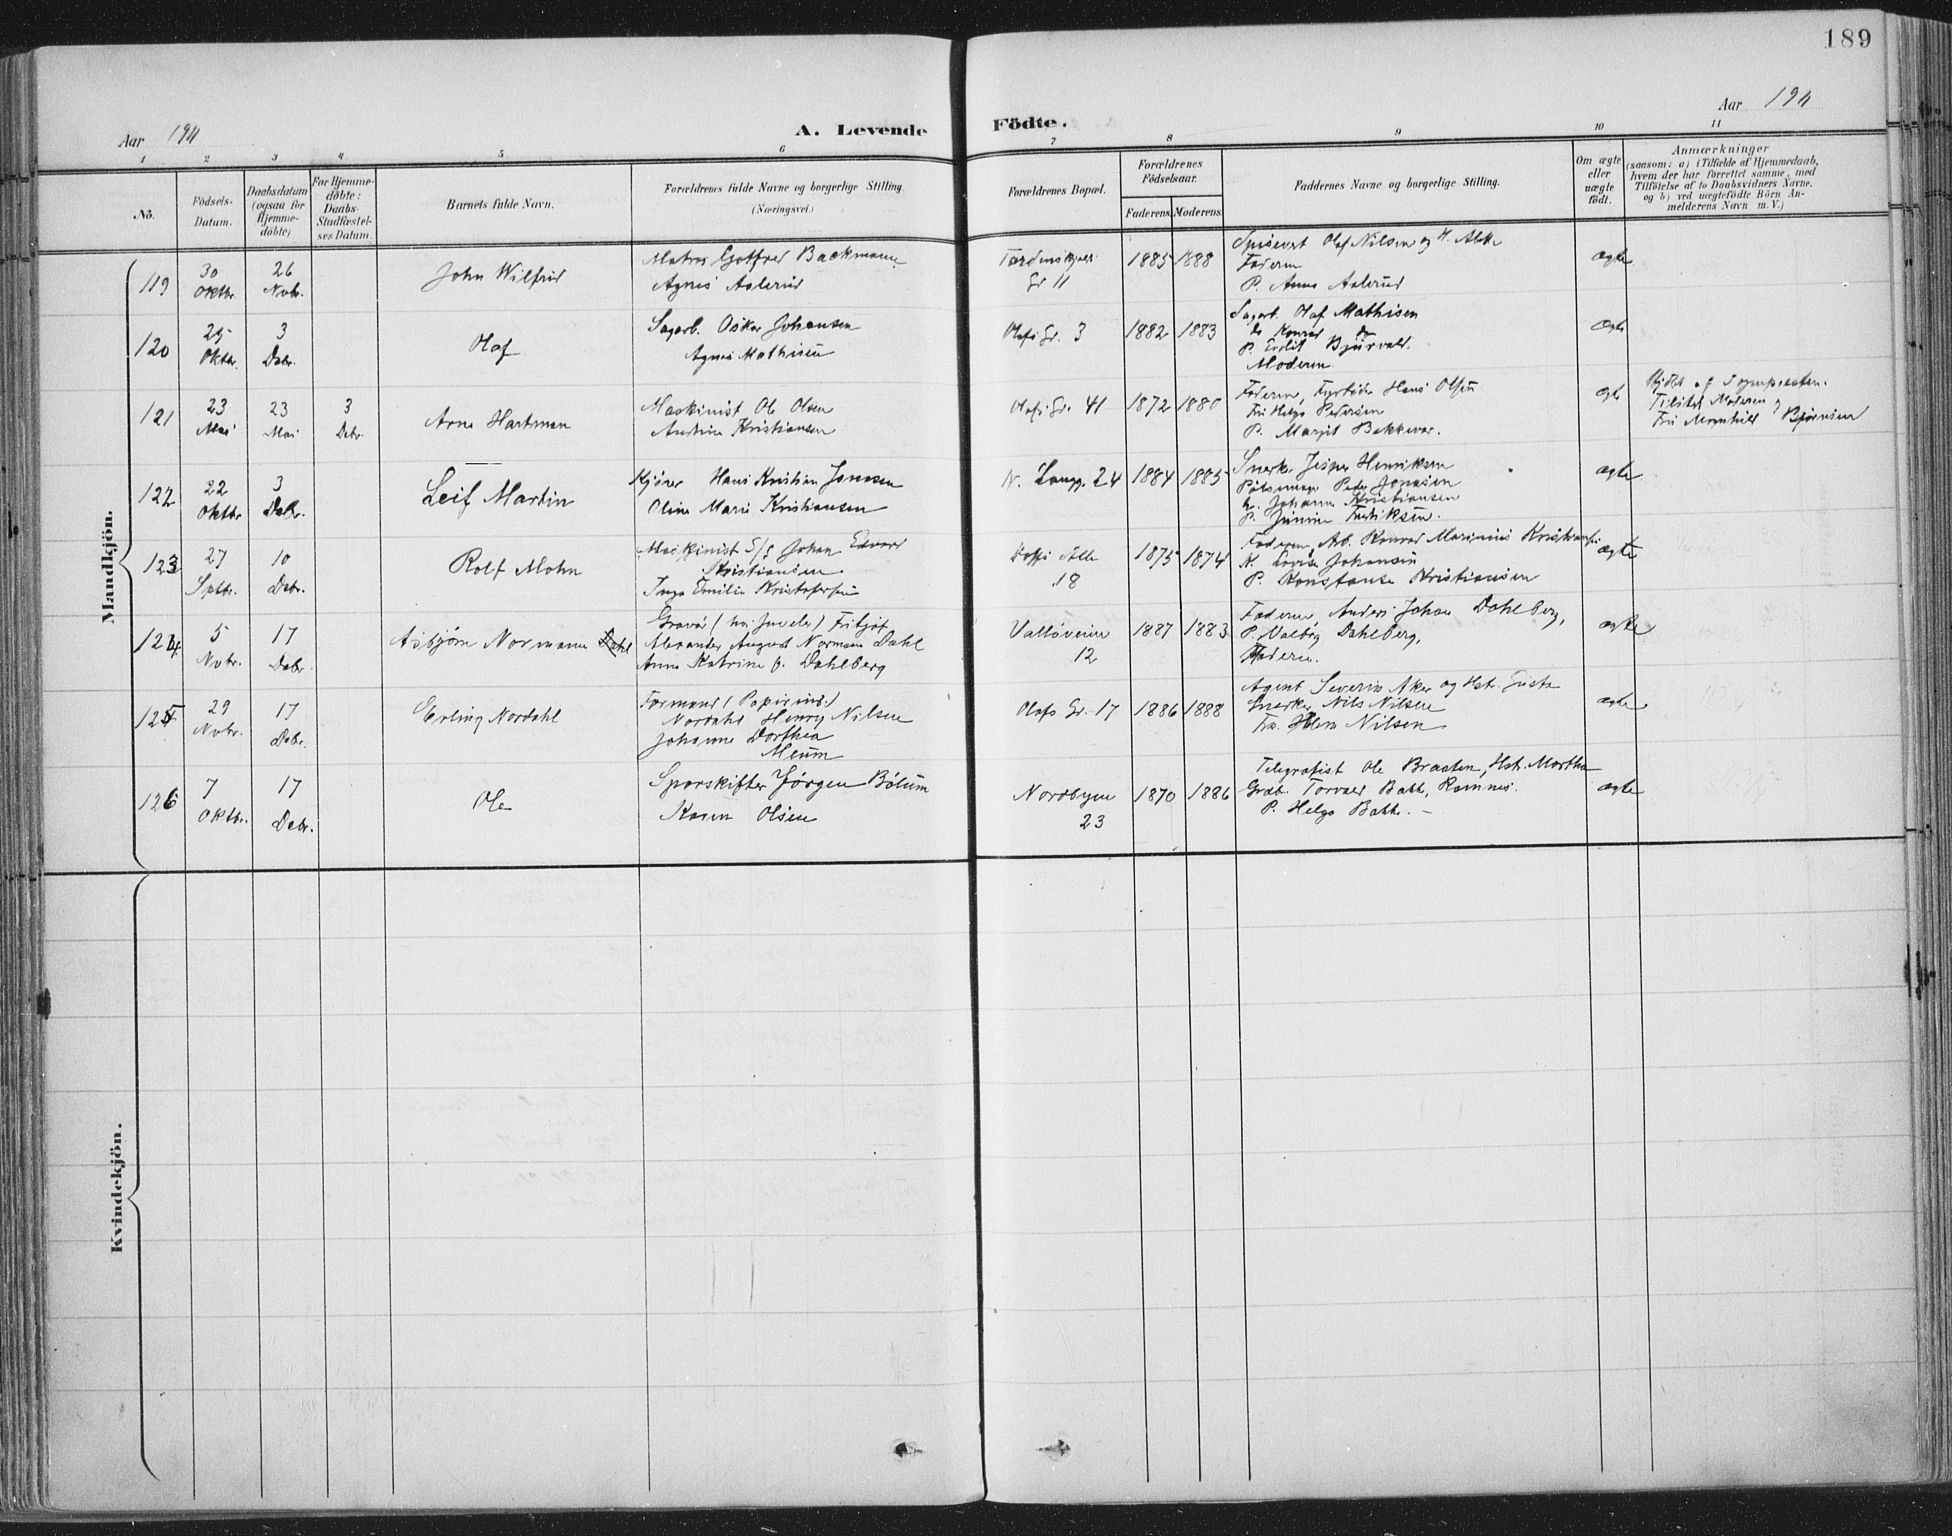 189
Aar 1911
A. Levende Födte.
Aar 1911
1 2 3 4 5 6 7 8 9 10 11
No.
Födsels-
Datum.
Daabsdatum
(ogsaa for
Hjemme-
döbte)
For Hjemme-
döbte:
Daabs-
Stadfæstel-
ses Datum.
Barnets fulde Navn.
Forældrenes fulde Navne og borgerlige Stilling.
(Næringsvei.)
Forældrenes Bopæl.
Forældrenes
Födselsaar.
Faderens.
Moderens.
Faddernes Navne og borgerlige Stilling.
Om ægte
eller
uægte
födt.
Anmærkninger
(saasom: a) i Tilfælde af Hjemmedaab,
hvem der har forrettet samme, med
Tilföielse af to Daabsvidners Navne,
og b) ved uægtefödte Börn An-
melderens Navn m. V.)
Mandkjön.
119
30
Oktbr.
26
Novbr.
John Wilfrid
Matros Gotfred Backmann
Agnes Aalerud
Tordenskjolds
Gd 11
1885 1888
Olaf Nilsen og H.
Faderen
P. Anna Aalerud
ægte
120
25
Oktbr.
3
Debr.
Olaf
Sagarb. Oskar Johansen
Agnes Mathisen
Olafs Gd. 3
1882 1883
Sagarb. Olaf Mathisen
do Konrad do
P. Bjurvald.
Moderen
ægte
121
23
Mai
23
Mai
3
Debr.
Arne Hartman
Maskinist Ole Olsen
Andrine Kristiansen
Olafs Gd. 41
1872 1880
Faderen, Fyrbøder Hans Olsen
Fru Helga Pedersen
P. Margit Bakkevar.
ægte
Hjdbt af Sognepresten.
Tilstede Moderen og
Fru Bjørnsen
122
22
Oktbr
3
Debr.
Leif Martin
Kjører Hans Kristian Jonasen
Oline Marie Kristiansen
N. Langg. 24
1884 1885
Snerker Jesper Henriksen
Pølsemager Peter Jonasen
Johanne Kristiansen
P. Fredriksen.
ægte
123
27
Sptbr.
10
Debr.
Rolf Mohn
Maskinist S/S Johan Edvard
Kristiansen
Inga Emilie Kristofersen
Alle
18
1875 1874
Faderen, Arb. Konrad Marinius Kristiansen
K. Lovise Johansen
P. Konstanse Kristiansen
ægte
124
5
Nobr.
17
Debr.
Asbjørn Normann Dahl
Gravør (hos Juveler) Fritjof
Alexander August Normann Dahl
Anna Katrine f. Dahlberg
Valløveien
12
1887 1883
Faderen Anders Johan Dahlberg,
P. Valborg Dahlberg,
Faderen.
ægte
125
29
Nobr.
17
Debr.
Erling Nordahl
Formand (Papirind.)
Nordahl Henry Nilsen
Johanne Dorthea
Meum
Olafs Gd. 17
1886 1888
Agent Severin Aker og Hstr. Gusta
Snerker Nils Nilsen
Fru Nilsen
ægte
126
7
Oktbr.
17
Debr.
Ole
Sporskifter Jørgen Bølum
Karen Olsen
Nordbyen
23
1870 1886
Telegrafist Ole Braaten, Hstr. Martha
Grdb. Torvald Bakke, Ramnes.
P. Helga Bakke. —
ægte
Kvindekjön.